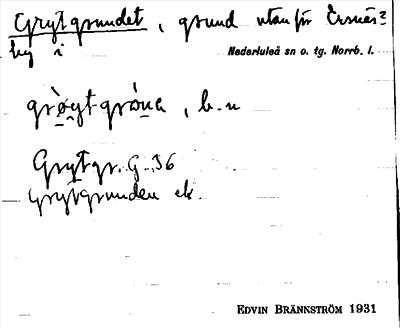 Grytgrundet, grund utanför Ersnäs-
by i Nederluleå sn o. tg. Norrb. l.
grø̀yt-grón̲a, b. n
Grytgr. G. 36
Grytgrunden ek.
EDVIN BRÄNNSTRÖM 1931